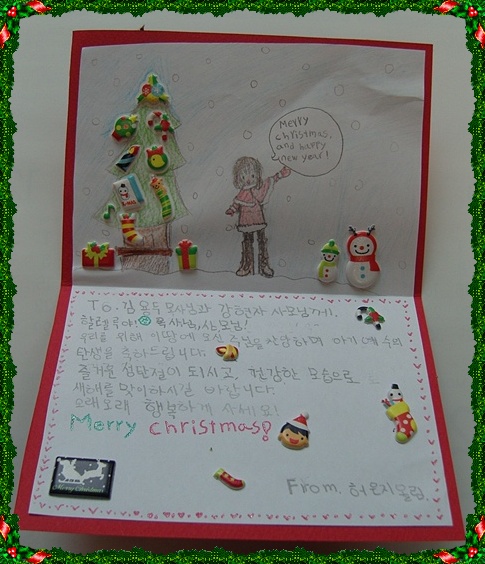 Merry
christmas.
and happy
new year!
To. 김용두 목사님과 강현자 사모님께.
할렐루야! 목사님, 사모님!
우리를 위해 이땅에 오신 주님을 찬양하며 아기 예수의
탄생을 축하드립니다.
즐거운 성탄절이 되시고, 건강한 모습으로
새해를 맞이하시길 바랍니다.
오래오래 행복하게 사세요!
Merry christmas!
From. 허은지 올림.